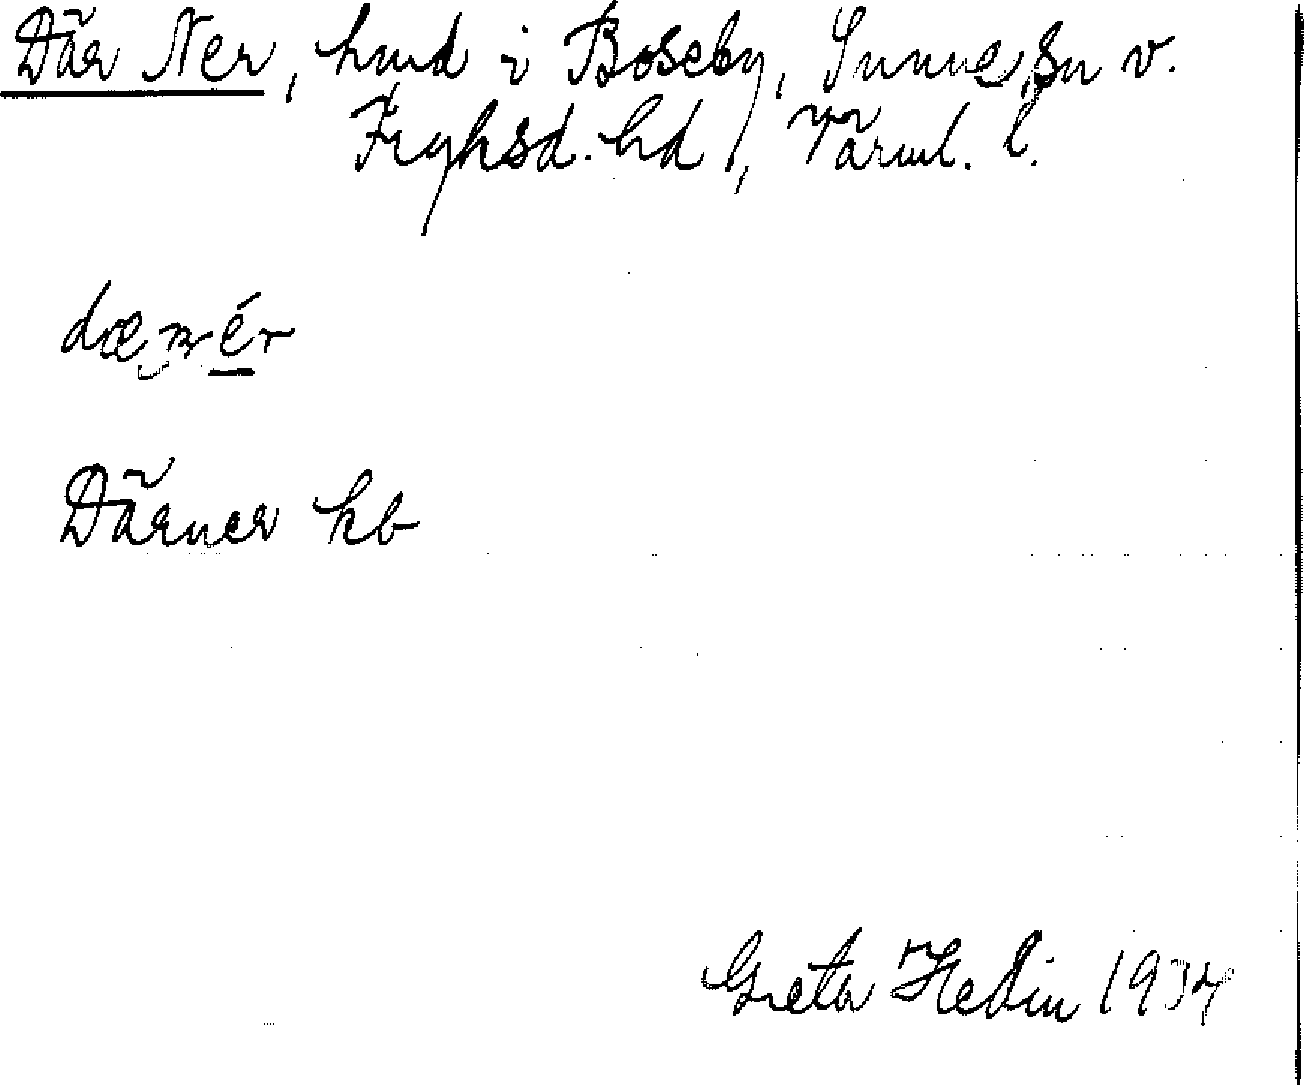 Där Ner, hmd i Boseby, Sunne sn v.
Fryksd. hd, Värml. l.
Därner kb
Greta Hedin 1934